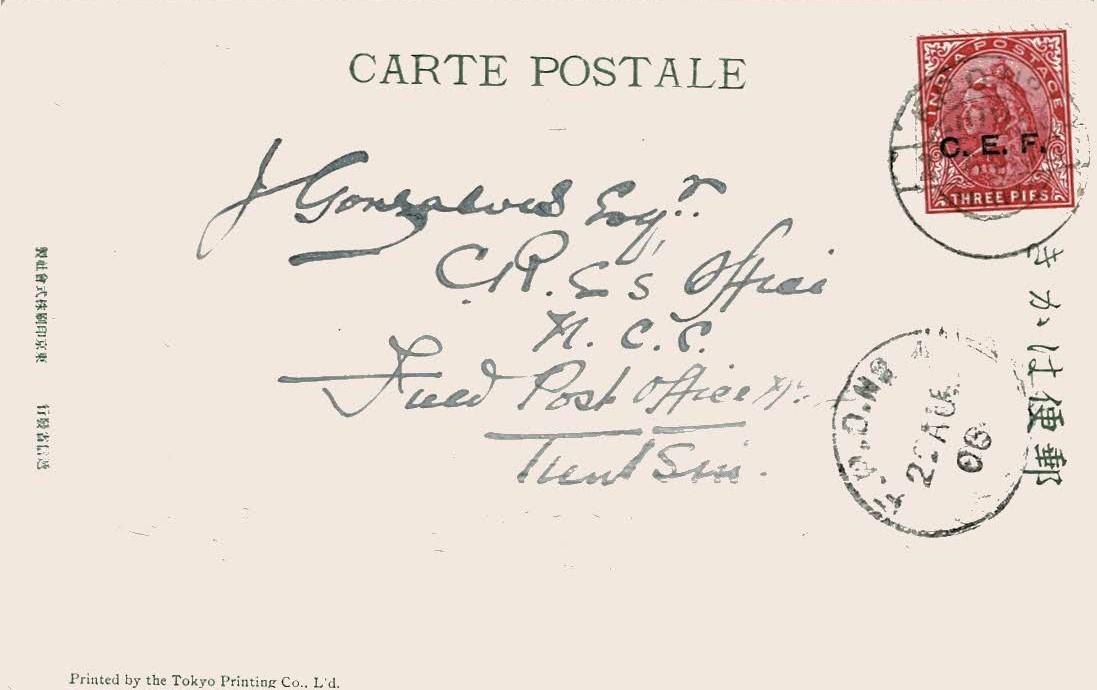 CARTE POSTALE
INDIA POSTAGE
C. E. F.
THREE PIES
J Gonsalves Esqr.
C.R.E's Office
N. C. C.
Field Post Office
Tientsin.
F.P.O. No
22 AU
06
きかは便郵
製社會式株刷印京東
行發省信遞
Printed by the Tokyo Printing Co., L'd.